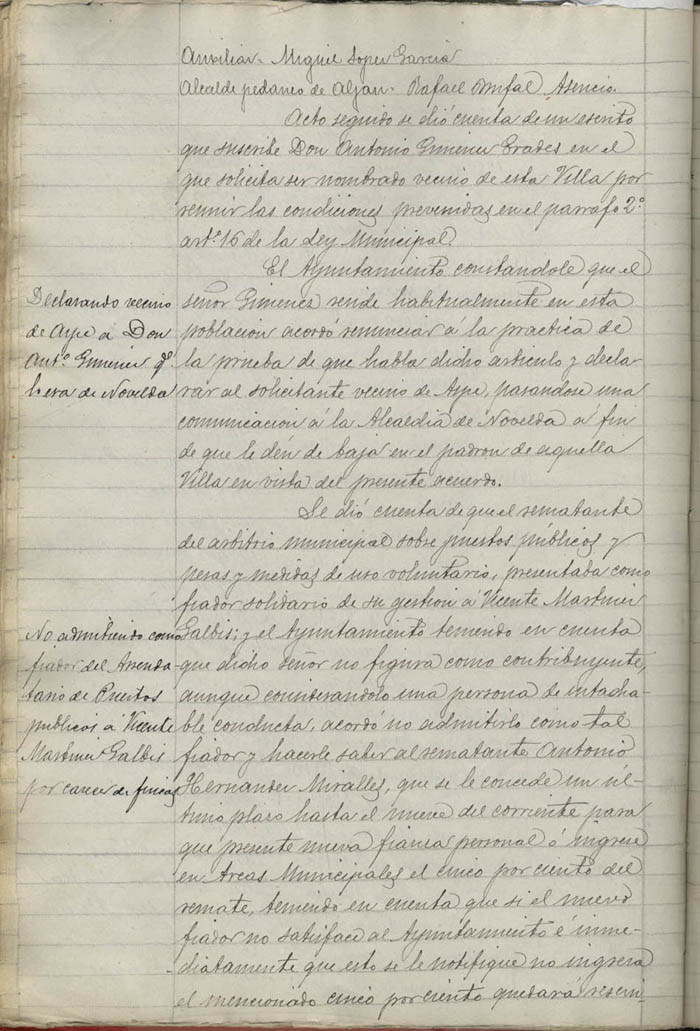 Auxiliar. Miguel Lopez Garcia
Alcalde pedaneo de Aljau. Rafael Bonfal Asencio.
Acto seguido se dió cuenta de un escrito
que suscribe Don Antonio Gimenez Erades en el
que solicita ser nombrado vecino de esta Villa por
reunir las condiciones prevenidas en el parrafo 2º
artº 16 de la Ley Municipal.
El Ayuntamiento constandole que el
señor Gimenez reside habitualmente en esta
poblacion acordó renunciar á la practica de
la prueba de que habla dicho articulo y decla-
rar al solicitante vecino de Aspe, pasandose una
comunicacion á la Alcaldia de Novelda á fin
de que le dén de baja en el padron de aquella
Villa en vista del presente acuerdo.
Declarando vecino
de Aspe á Don
Antº Gimenez q.
lo era de Novelda
Se dió cuenta de que el rematante
del arbitrio municipal sobre puestos públicos y
pesas y medidas de uso voluntario, presentaba como
fiador solidario de su gestion á Vicente Martinez
Galbis; y el Ayuntamiento teniendo en cuenta
que dicho señor no figura como contribuyente,
aunque considerandolo una persona de intacha-
ble conducta, acordó no admitirlo como tal
fiador y hacerle saber al rematante Antonio
Hernandez Miralles, que se le concede un úl-
timo plazo hasta el nueve del corriente para
que presente nueva fianza personal ó ingrese
en Arcas Municipales el cinco por ciento del
remate, teniendo en cuenta que si el nuevo
fiador no satisface al Ayuntamiento é inme-
diatamente que esto se le notifique no ingresa
el mencionado cinco por ciento quedará rescin-
No admitiendo como
fiador del Arrenda-
tario de Puestos
publicos á Vicente
Martinez Galbis
por carecer de fincas